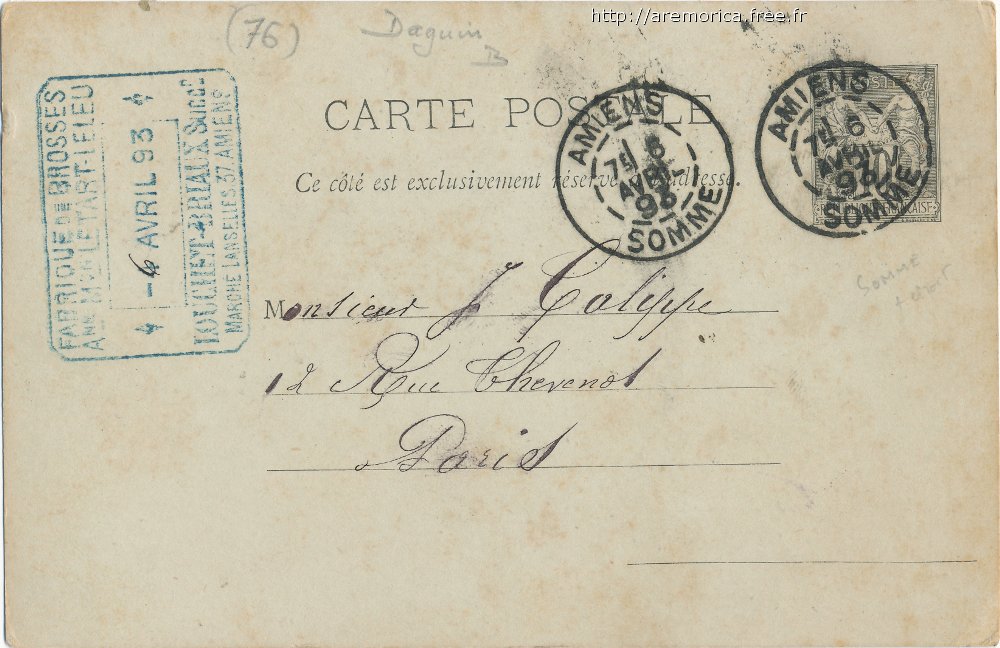 http://aremorica.free.fr
(76)
Daguin
B
FABRIQUE DE BROSSES
AnNe Mon LETART-LELEU
6 AVRIL 93
LOUCHET-BRIAUX Succr
MARCHÉ LANSELLES 37 AMIENS
CARTE POSTALE
Ce côté est exclusivement réservé à l'adresse.
AMIENS
7E 6
AVRIL
93
SOMME
AMIENS
7E 6
AVRIL
93
SOMME
POSTES
Somme
Monsieur J Calippe
12 Rue Thevenot
Paris